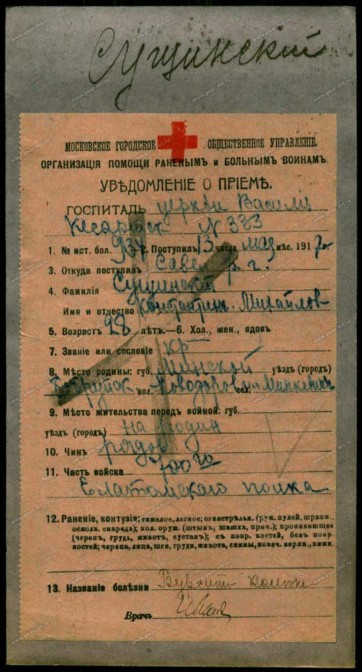 Сущинский
МОСКОВСКОЕ ГОРОДСКОЕ ОБЩЕСТВЕННОЕ УПРАВЛЕНІЕ.
ОРГАНИЗАЦІЯ ПОМОЩИ РАНЕНЫМЪ и БОЛЬНЫМЪ ВОИНАМЪ.
УВѢДОМЛЕНІЕ О ПРІЕМѢ.
ГОСПИТАЛЬ церкви Василия
N 383
1. № ист. бол. 934 2. Поступилъ 13 числа мая мѣс. 1917г.
3. Откуда поступилъ
4. Фамилія Сущинский
Имя и отчество Константин. Михайлов
5. Возрастъ 28 лѣтъ.—6. Хол., жен., вдов.
7. Званіе или сословіе кр
8. Мѣсто родины: губ. Минской уѣздъ (городъ)
вол.
9. Мѣсто жительства передъ войной: губ.
уѣздъ (городъ) на родин
10. Чинъ рядов
11. Часть войска
Елатомского полка
12. Раненіе, контузія: тяжелое, легкое; огнестрѣльн. (руж. пулей, шрапн.,
осколк. снаряда); хол. оруж. (штык., шашка, проч.); проникающее
(черепъ, грудь, животъ, суставъ); съ повр. костей, безъ повр.
костей; черепа, лица, шеи, груди, живота, спины, конеч. верхн., нижн.
13. Названіе болѣзни
Врачъ